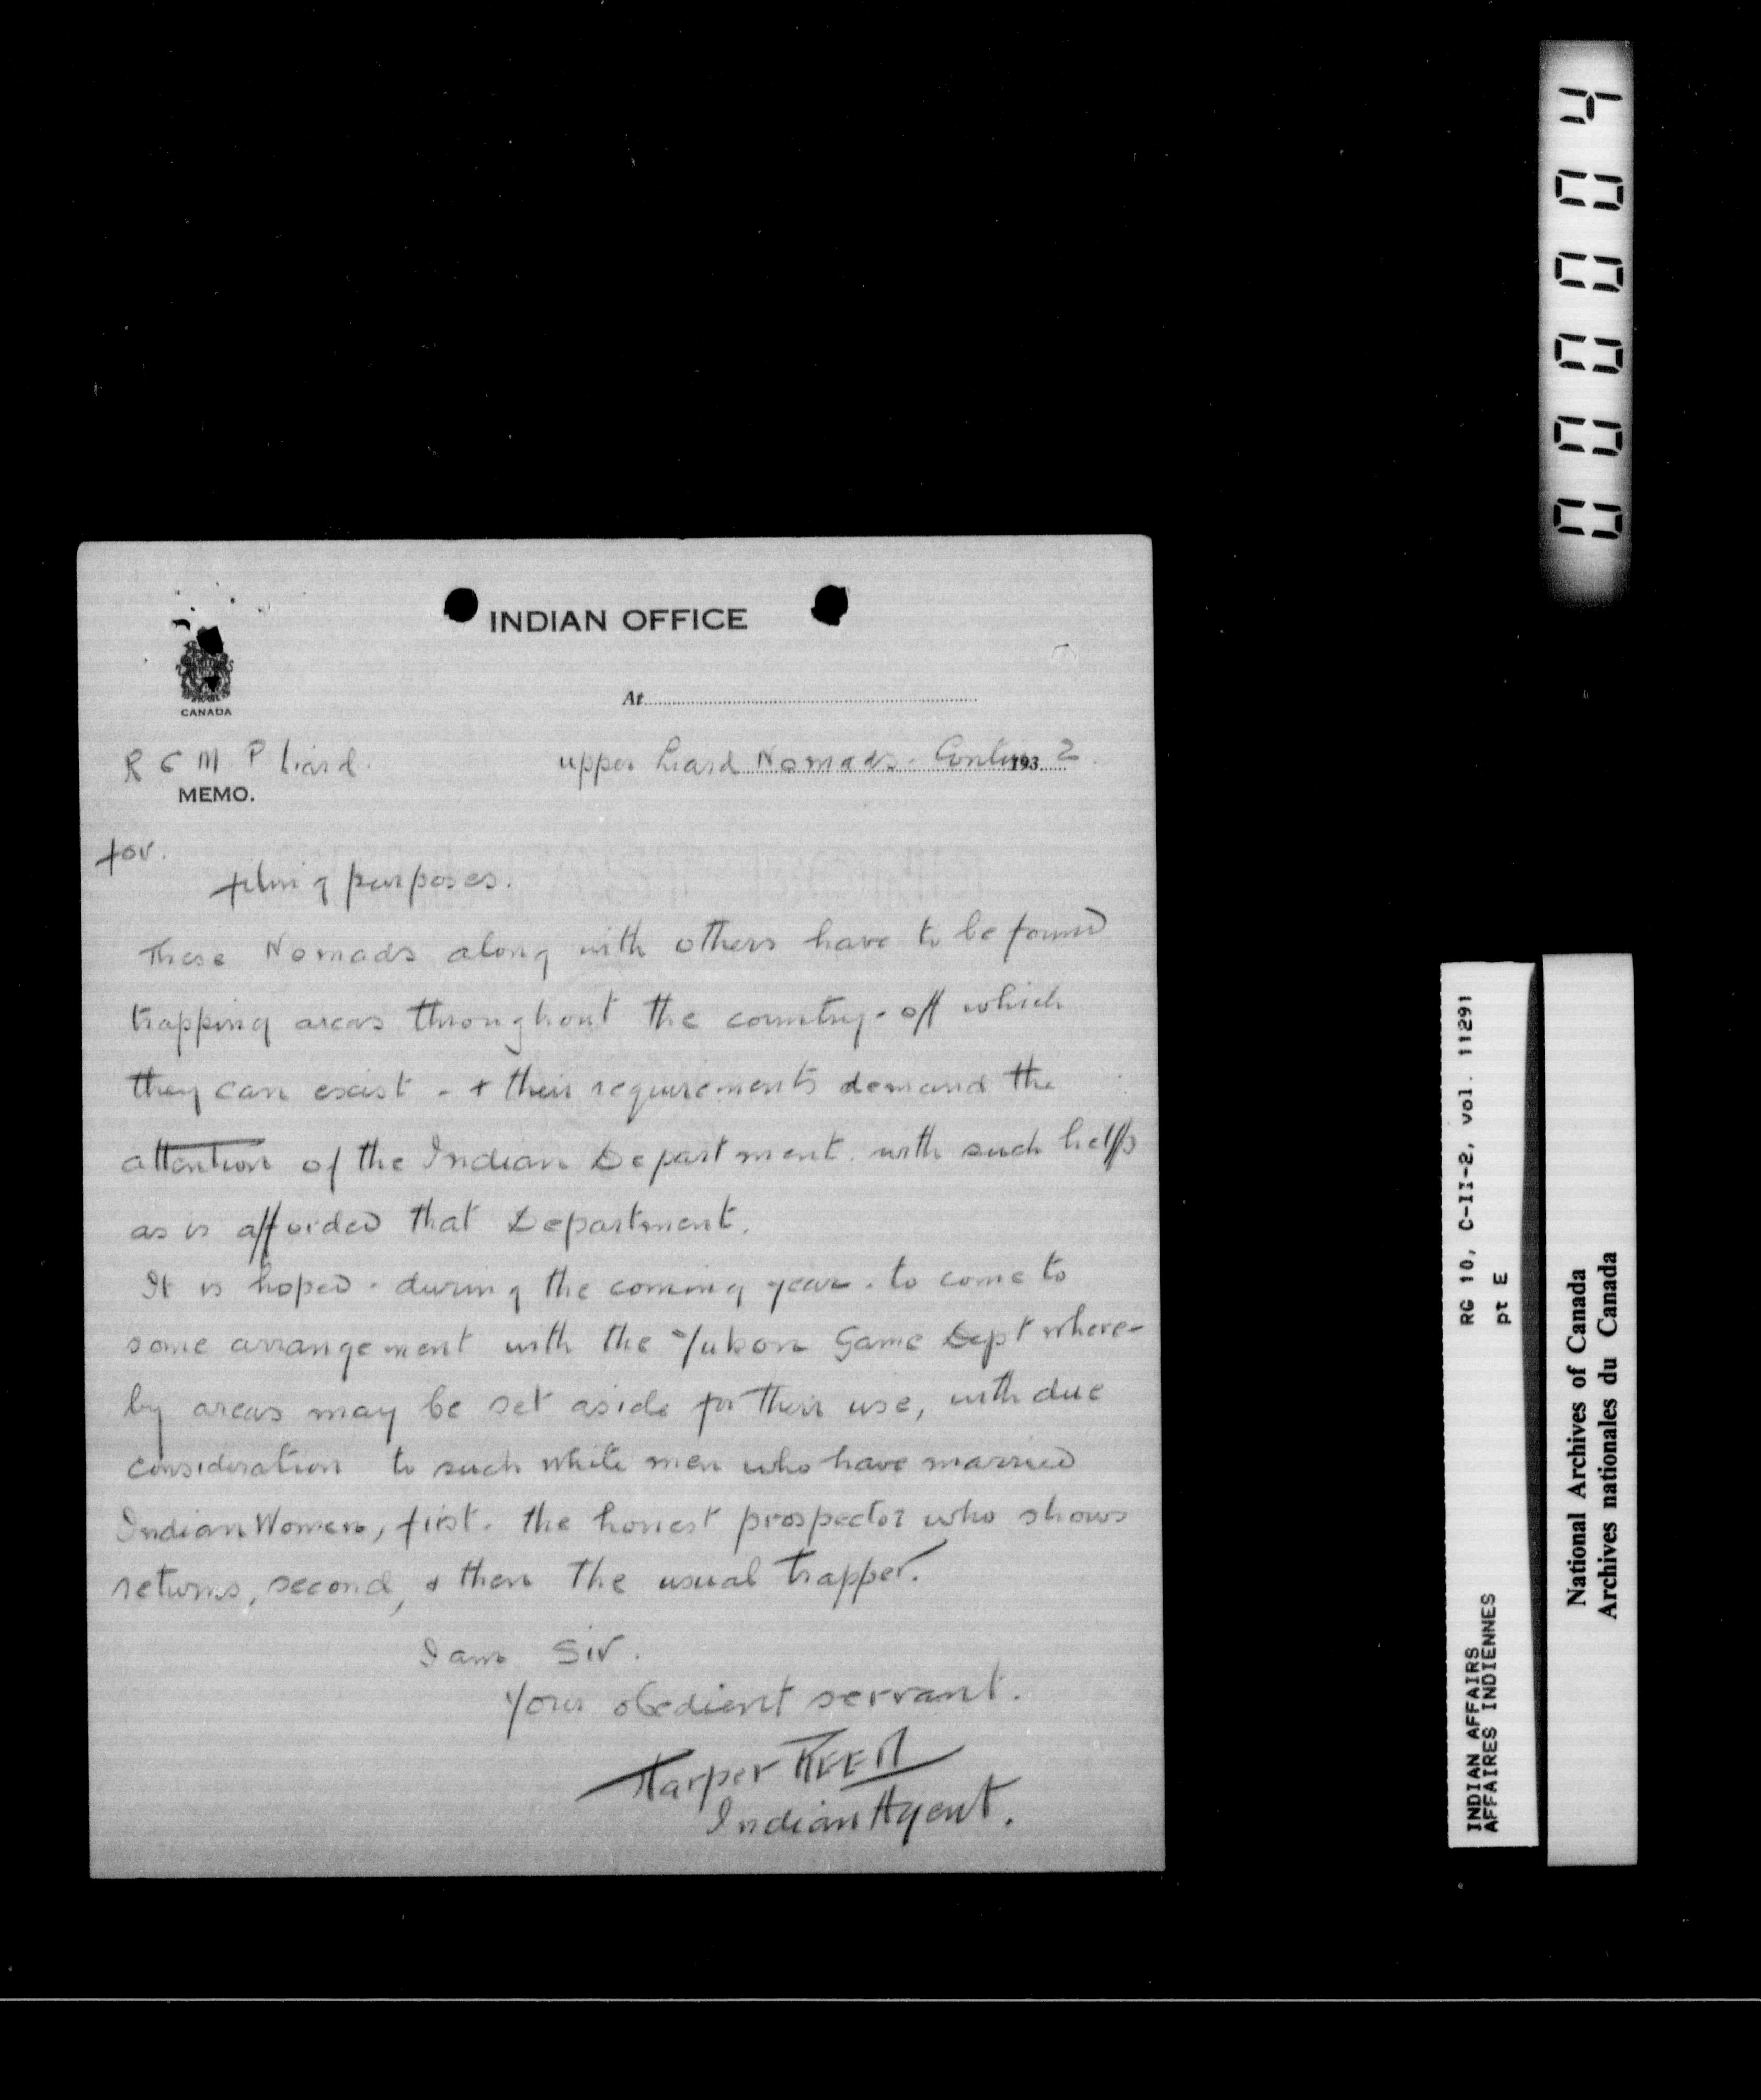 INDIAN OFFICE
At
CANADA
R C M P Liard.
upper Liard Nomads. Contin 193 2.
MEMO.
for.
filing purposes.
These Nomads along with others have to be found
trapping areas throughout the country - off which
they can exist - + their requirements demand the
attention of the Indian Department. with such helps
as is afforded that Department.
It is hoped - during the coming year. to come to
some arrangement with the Yukon Game Dept where-
by areas may be set aside for their use, with due
consideration to such white men who have married
Indian Women, first. the honest prospector who shows
returns, second, + then the usual trapper.
I am Sir.
Your obedient servant.
Harper REED
Indian Agent.
000004
RG 10, C-II-2, vol. 11291
pt E
INDIAN AFFAIRS
AFFAIRES INDIENNES
National Archives of Canada
Archives nationales du Canada